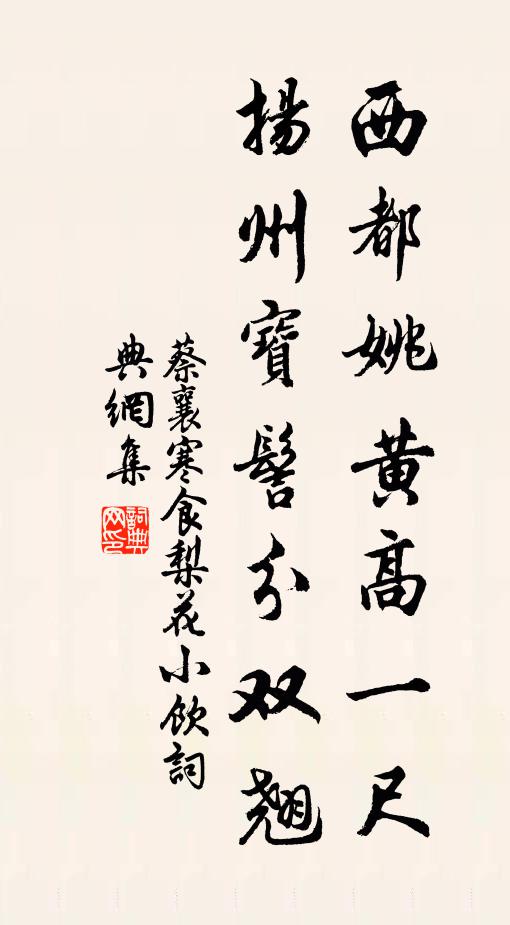 西都姚黄高一尺
揚州寶髻分双翹
蔡襄寒食梨花小飲詞
典網集
詞典网印